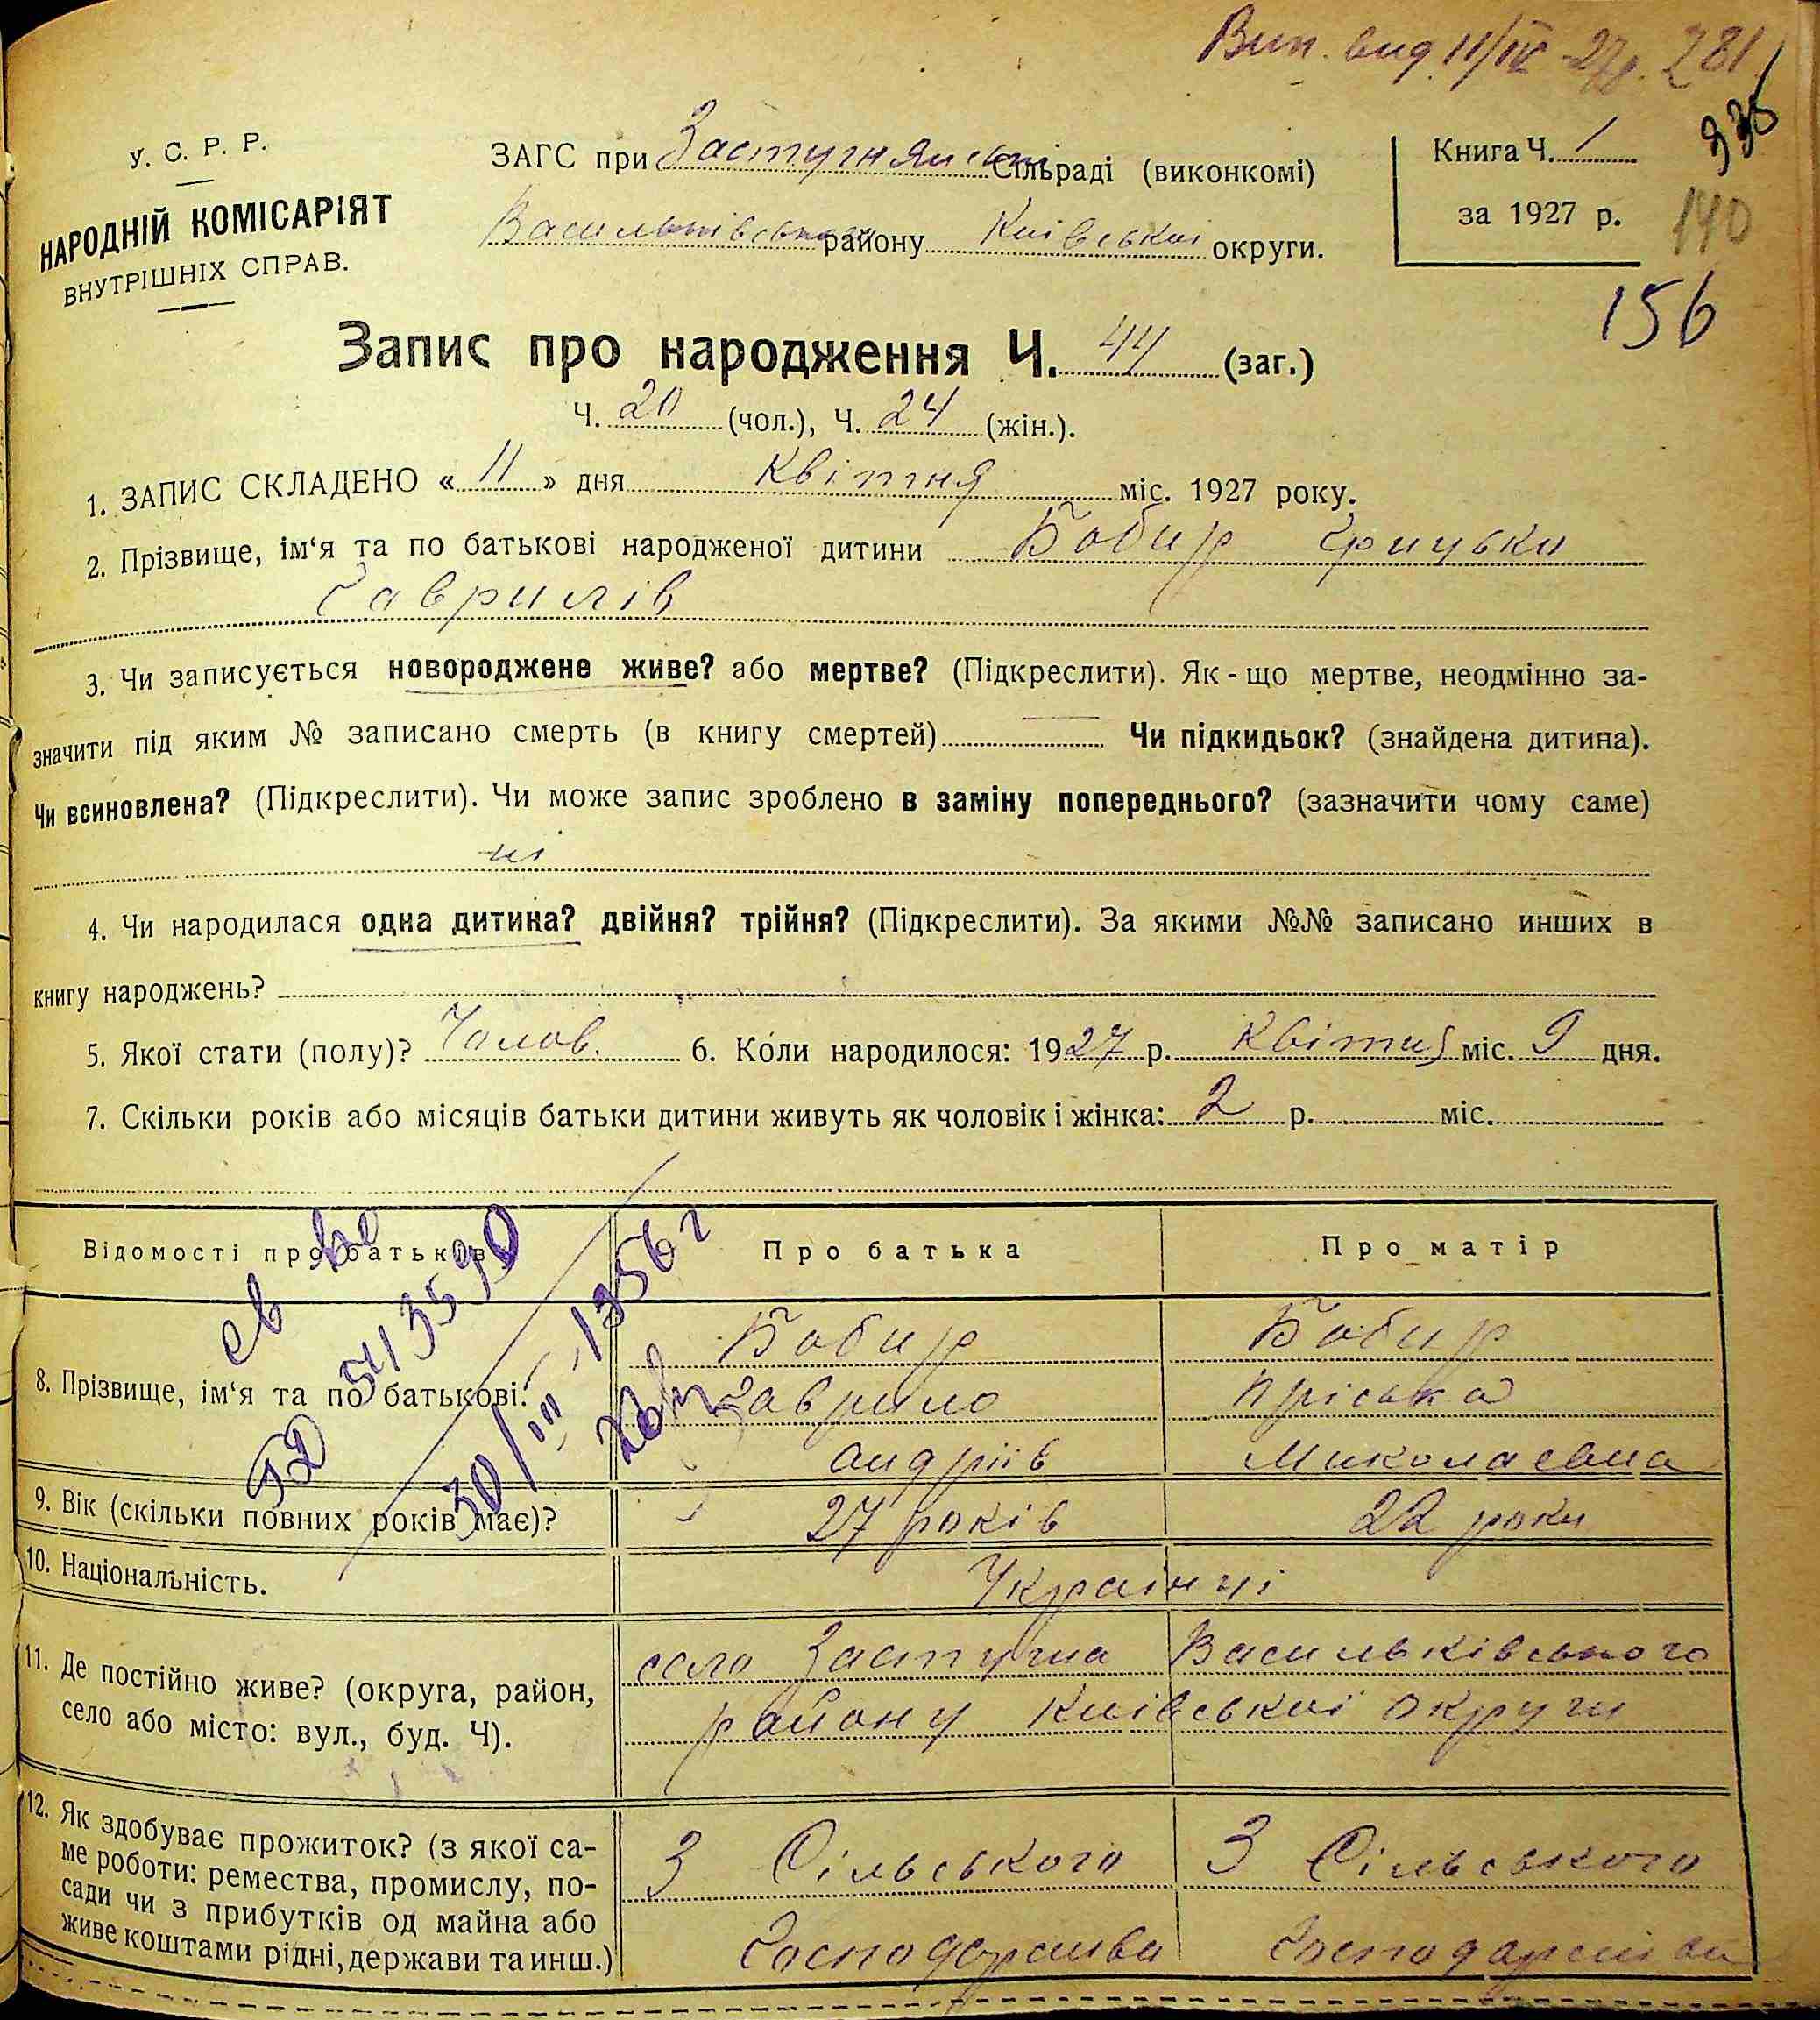 Вип. вид. 11/IV-27р. 281
335
140
156
У. С. Р. Р.
НАРОДНІЙ КОМІСАРІЯТ
ВНУТРІШНІХ СПРАВ.
ЗАГС при Застугнянські Сільраді (виконкомі)
Васильківського району Київської округи.
Книга Ч. 1
за 1927 р.
Запис про народження Ч. 44 (заг.)
Ч. 20 (чол.), Ч. 24 (жін.).
1. ЗАПИС СКЛАДЕНО « 11 » дня Квітня міс. 1927 року.
2. Прізвище, ім‘я та по батькові народженої дитини Бобир Грицько
Гаврилів
3. Чи записується новороджене живе? або мертве? (Підкреслити). Як-що мертве, неодмінно за-
значити під яким № записано смерть (в книгу смертей) Чи підкидьок? (знайдена дитина).
Чи всиновлена? (Підкреслити). Чи може запис зроблено в заміну попереднього? (зазначити чому саме)
ні
4. Чи народилася одна дитина? двійня? трійня? (Підкреслити). За якими №№ записано инших в
книгу народжень?
5. Якої стати (полу)? Чолов. 6. Коли народилося: 1927 р. Квітня міс. 9 дня.
7. Скільки років або місяців батьки дитини живуть як чоловік і жінка: 2 р. міс.
Відомості про батьків Про батька Про матір
8. Прізвище, ім‘я та по батькові. Бобир Бобир
Гаврило Пріська
Андріїв Миколаевна
9. Вік (скільки повних років має)? 27 років 22 роки
10. Національність. Українці
11. Де постійно живе? (округа, район,
село або місто: вул., буд. Ч).
село Застугна Васильківського
району Київської округи
12. Як здобуває прожиток? (з якої са-
ме роботи: ремества, промислу, по-
сади чи з прибутків од майна або
живе коштами рідні, держави та инш.)
З Сільського З Сільського
Господарства Господарства
30/III 1956 г